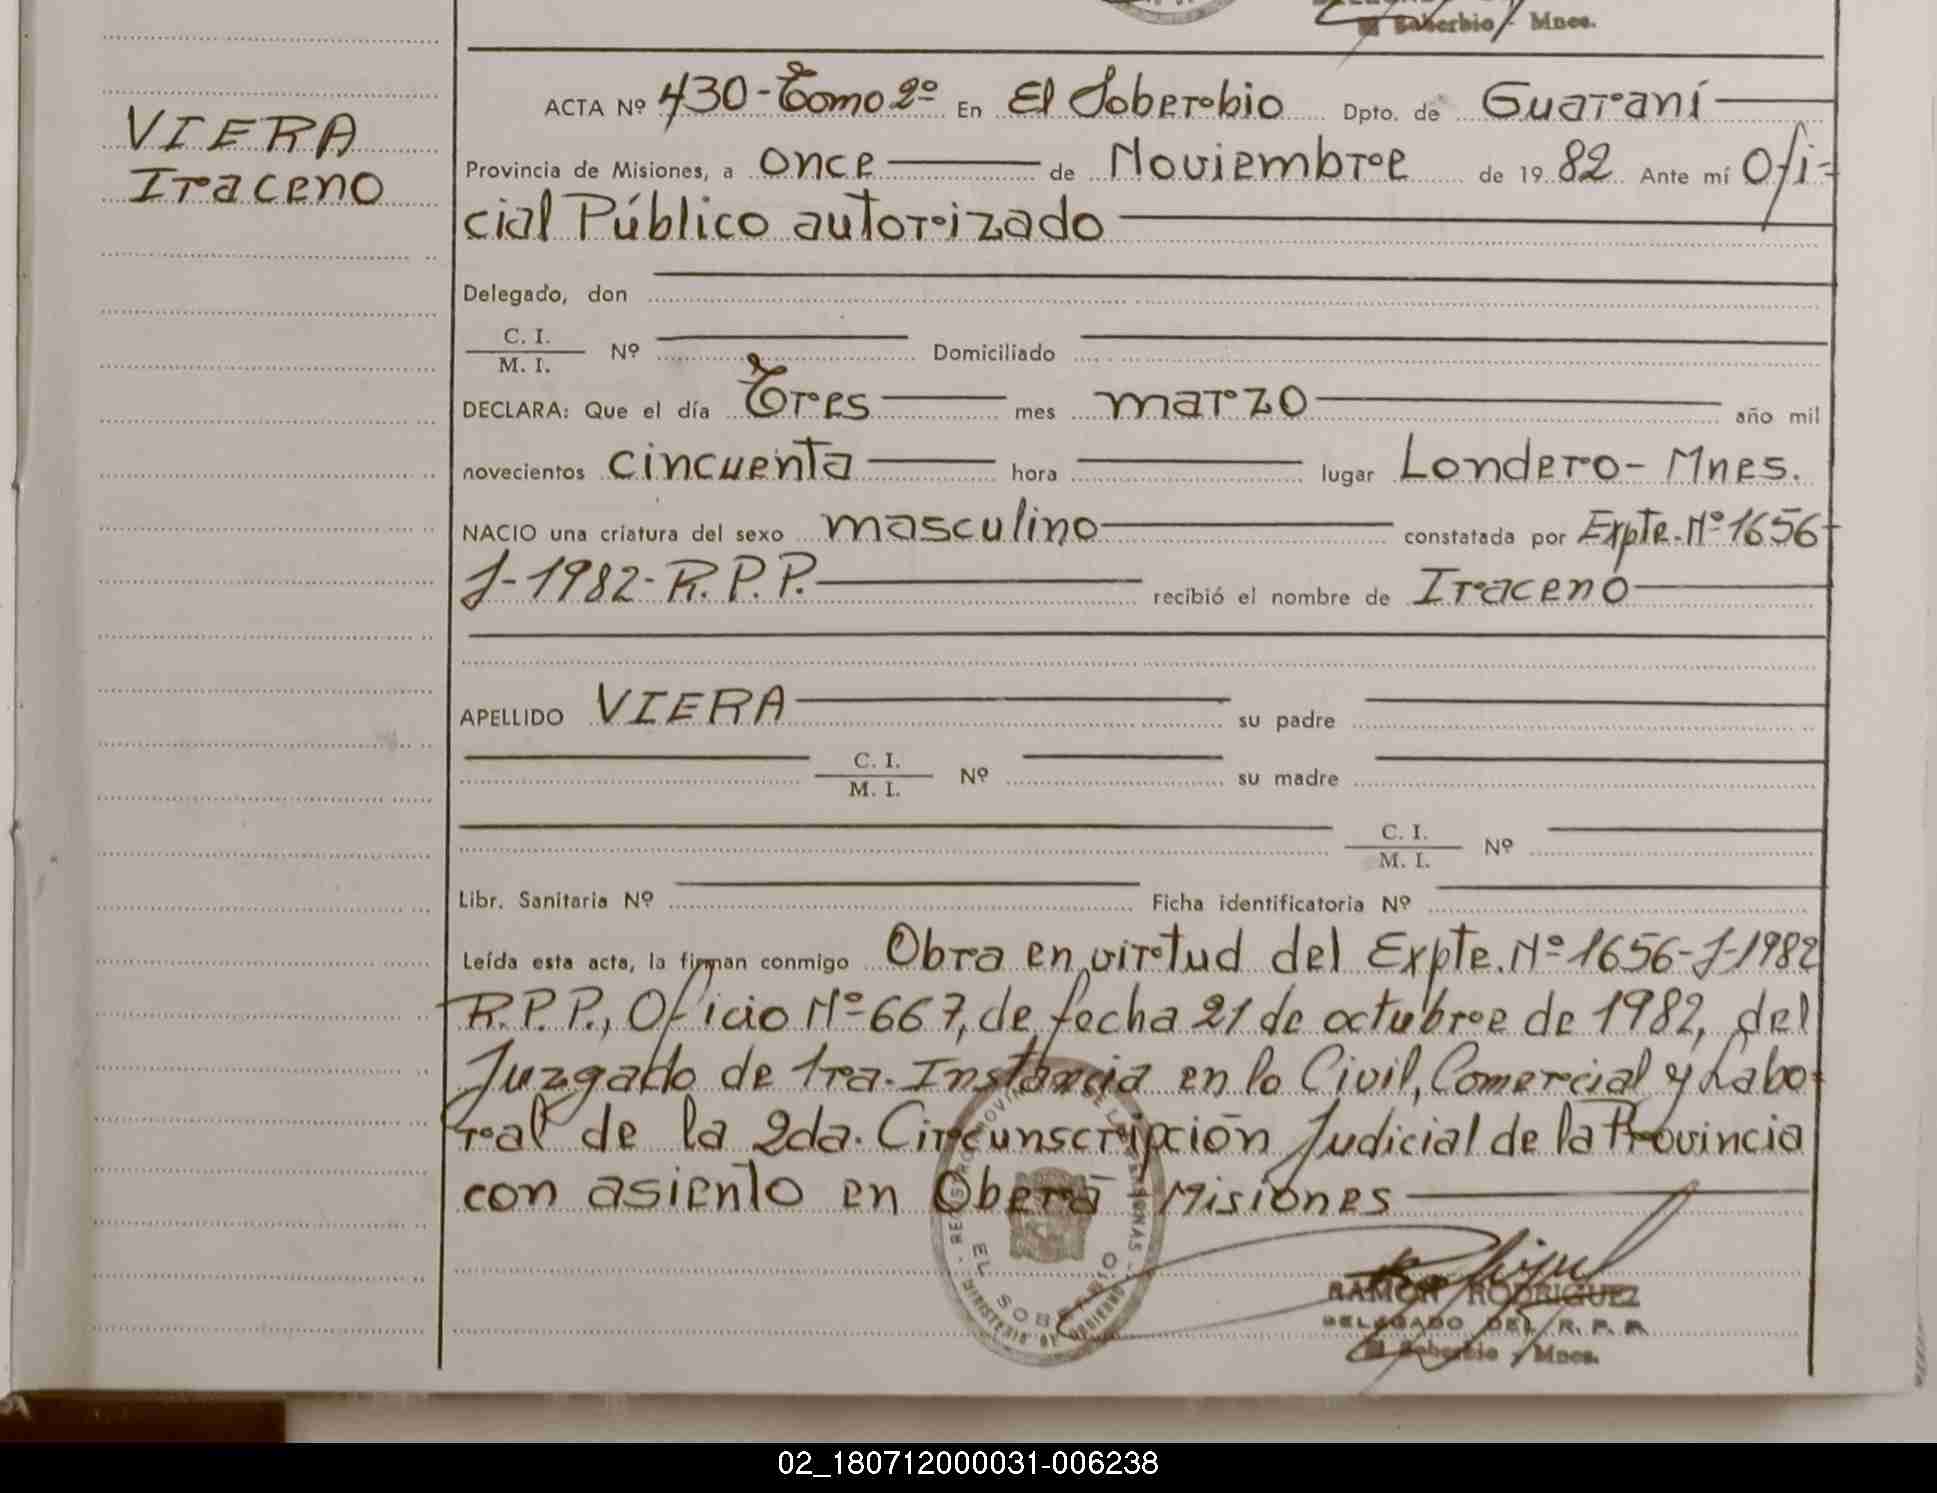 Soberbio - Mnes.
VIERA
Iraceno
ACTA Nº 430-Tomo 2º En El Soberbio Dpto. de Guaraní
Provincia de Misiones, a once de Noviembre de 1982 Ante mí Ofi-
cial Público autorizado
Delegado, don
C. I.
M. I.
Nº Domiciliado
DECLARA: Que el día Tres mes marzo año mil
novecientos cincuenta hora lugar Londero- Mnes.
NACIO una criatura del sexo masculino constatada por Expte. Nº 1656
J-1982-R.P.P. recibió el nombre de Iraceno
APELLIDO VIERA su padre
C. I.
M. I.
Nº su madre
C. I.
M. I.
Nº
Libr. Sanitaria Nº Ficha identificatoria Nº
Leída esta acta, la firman conmigo Obra en virtud del Expte. Nº 1656-J-1982
R.P.P., Oficio Nº 667, de fecha 21 de octubre de 1982, del
Juzgado de 1ra. Instancia en lo Civil, Comercial y Labo-
ral de la 2da. Circunscripción Judicial de la Provincia
con asiento en Oberá Misiones
EL SOBERBIO
RAMON RODRIGUEZ
DELEGADO DEL R. P. P.
El Soberbio - Mnes.
02_180712000031-006238